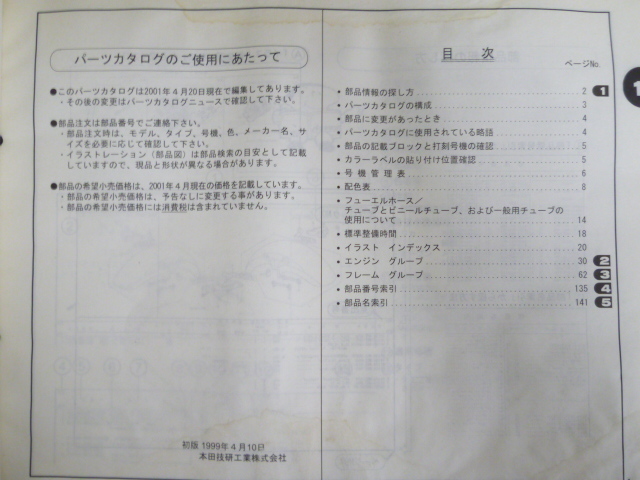 パーツカタログのご使用にあたって
●このパーツカタログは2001年4月20日現在で編集してあります。
・その後の変更はパーツカタログニュースで確認して下さい。
●部品注文は部品番号でご連絡下さい。
・部品注文時は、モデル、タイプ、号機、色、メーカー名、サ
イズを必要に応じて確認して下さい。
・イラストレーション（部品図）は部品検索の目安として記載
していますので、現品と形状が異なる場合があります。
●部品の希望小売価格は、2001年4月現在の価格を記載しています。
・部品の希望小売価格は、予告なしに変更する事があります。
・部品の希望小売価格には消費税は含まれていません。
初版 1999年4月10日
本田技研工業株式会社
目 次
ページNo.
・部品情報の探し方 2 1
・パーツカタログの構成 3
・部品に変更があったとき 4
・パーツカタログに使用されている略語 4
・部品の記載ブロックと打刻号機の確認 5
・カラーラベルの貼り付け位置確認 5
・号機管理表 6
・配色表 8
・フューエルホース／
チューブとビニールチューブ、および一般用チューブの
使用について 14
・標準整備時間 18
・イラスト インデックス 20
・エンジン グループ 30 2
・フレーム グループ 62 3
・部品番号索引 135 4
・部品名索引 141 5
1